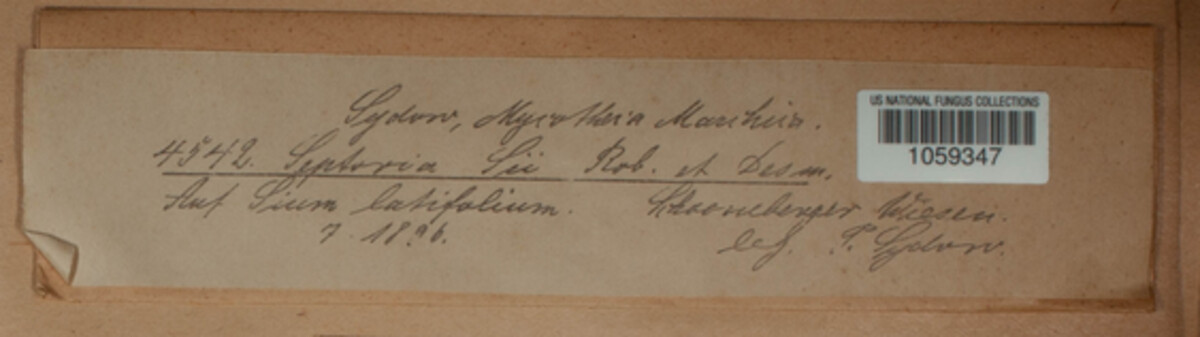 Sydow, Mycotheca Marchica.
4542. Septoria Sii Rob. et Desm.
Auf Sium latifolium. Schöneberger Wiesen.
7. 1896.
leg. P. Sydow.
US NATIONAL FUNGUS COLLECTIONS
1059347